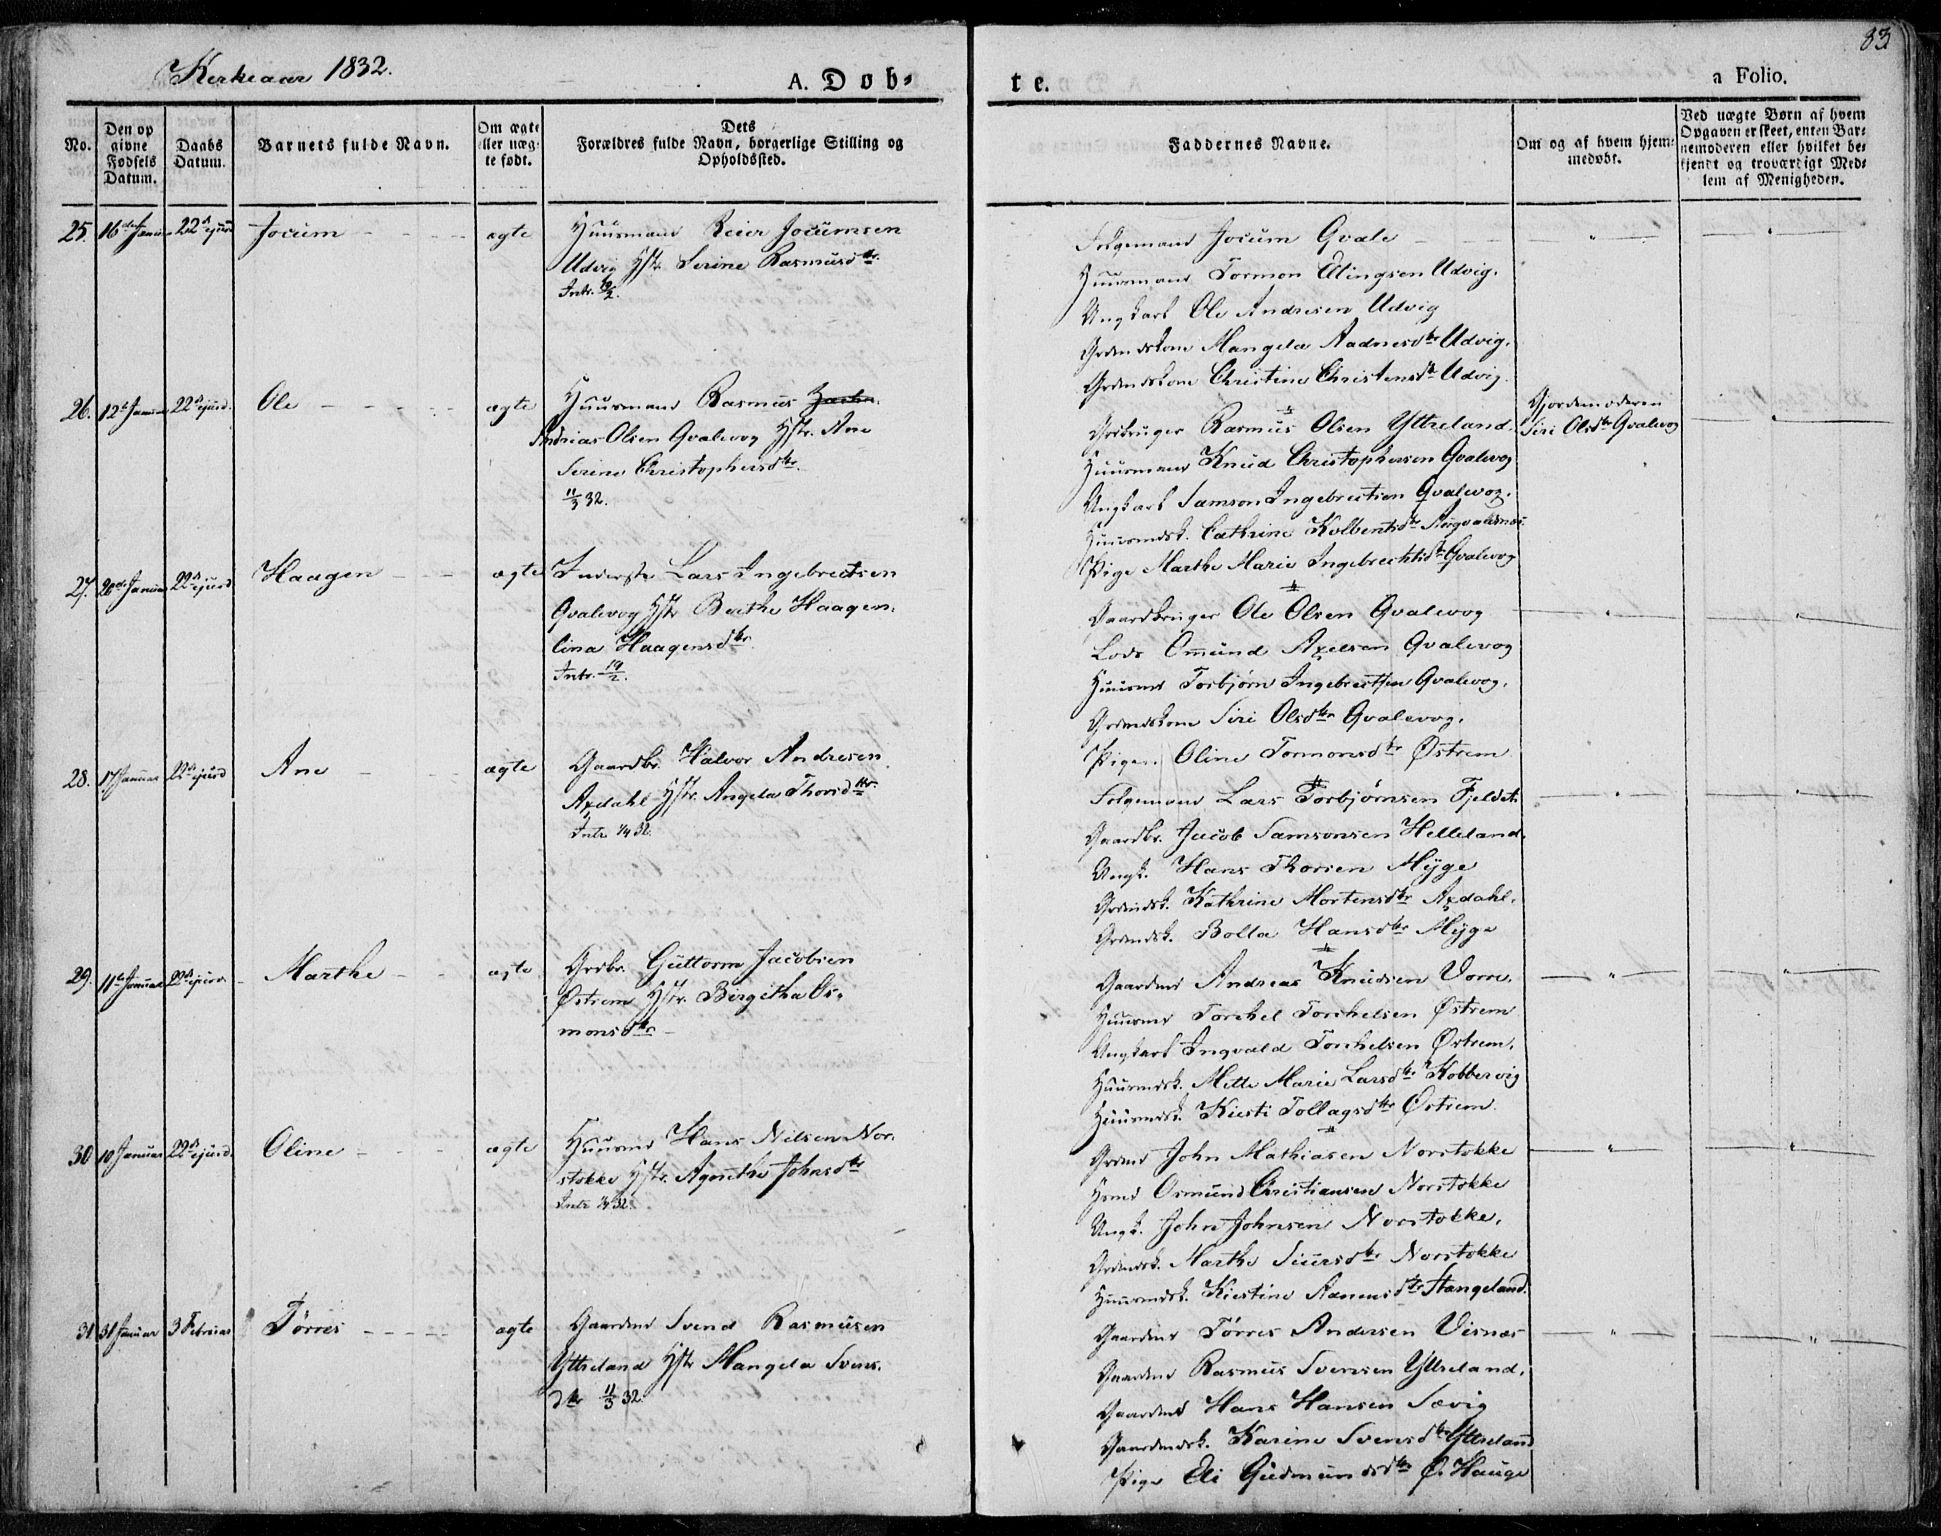 Kirkeaar 1832.
A. Døb-
te.
83
a Folio.
No.
Den op
givne
Fødsels
Datum.
Daabs
Datum.
Barnets fulde Navn.
Om ægte
eller uæg-
te født.
Dets
Forældres fulde Navn, borgerlige Stilling og
Opholdssted.
Faddernes Navne.
Om og af hvem hjem-
medøbt.
Ved uægte Børn af hvem
Opgaven er skeet, enten Bar-
nemoderen eller hvilket be-
kjendt og troværdigt Med-
lem af Menigheden.
25. 16de Janu 22d ejusd Jocum ægte Huusmand Reier Jocumsen
Udvig Hstr. Serine Rasmusdtr.
Intr. 19/2.
Folgemand Jocum Qvale
Huusmand Tormon Elingsen Udvig.
Ungkarl Ole Andresen Udvig
Grdmdskone Mangela Aadnesdtr Udvig.
Grdmdskone Christine Christensdtr Udvig.
26. 12te Januar 22d ejusd. Ole ægte Huusmand Rasmus
Andrias Olsen Qvalevog Hstr. Ane
Serine Christophersdtr.
11/3 32.
Grdbruger Rasmus Olsen Yttreland.
Huusmand Knud Christophersen Qvalevog
Ungkarl Samson Ingebrectsen Qvalevog.
Huusmdsk. Cathrine Kolbentsdtr Augvaldsnæs.
Pige Marthe Marie Ingebrechtsdtr Qvalevog
Gjordemoderen
Siri Olsdtr Qvalevog
27. 20de Januar 22d ejusd Haagen ægte Inderste Lars Ingebrectsen
Qvalevog Hstr Berthe Haagen-
lina Haagensdtr.
Intr. 19/2.
Gaardbruger Ole Olsen Qvalevog
Lods Omund Axelsen Qvalevog
Huusmd Torbjørn Ingebrectsen Qvalevog.
Grdmdskone Siri Olsdtr Qvalevog.
Pigen Oline Tormonsdtr Østrem
28. 17 Januar 22d ejusd Ane ægte Gaardbr. Halvor Andresen
Axdahl Hstr. Angela Thorsdtr.
Intr 1/4 32.
Folgemand Lars Torbjørnsen Fjeldet
Gaardbr. Jacob Samsonsen Helleland.
Ungk. Hans Thorsen Myge
Grdmdsk. Kathrine Mortensdtr Axdahl.
Grdmdsk. Bolla Hansdtr Myge
29. 11te Januar 22d ejusd. Marthe ægte Grdbr. Guttorm Jacobsen
Østrem Hstr. Birgitha Os-
monsdtr.
Gaardmd Andreas Knudsen Vorre.
Huusmd Torchel Torchelsen Østrem
Ungkarl Ingvald Torchelsen Østrem.
Huusmdsk. Mette Marie Larsdtr Kobbervig
Huusmdsk. Kirsti Tollagsdtr Østrem.
30 10 Januar 22d ejusd. Oline ægte Huusmd Hans Nilsen Nor-
stokke Hstr. Agnethe Johnsdtr
Intr 1/4 32.
Grdmd John Mathiasen Norstokke
Hsmd Osmund Christiansen Norstokke
Ungk. John Johnsen Norstokke.
Grdmdsk. Marthe Siursdtr Norstokke
Huusmdsk. Kirstine Aanensdtr Stangeland.
31 31 Januar 3 Februar Tørres ægte Gaardmd Svend Rasmusen
Yttreland Hstr Mangela Svens-
dtr 11/3 32.
Gaardmd Tørres Andersen Visnæs
Gaardmd Rasmus Svensen Yttreland.
Gaardmd Hans Hansen Sævig
Gaardmdsk. Karine Svensdtr Yttreland
Pige Eli Gudmundsdtr Ø. Hauge